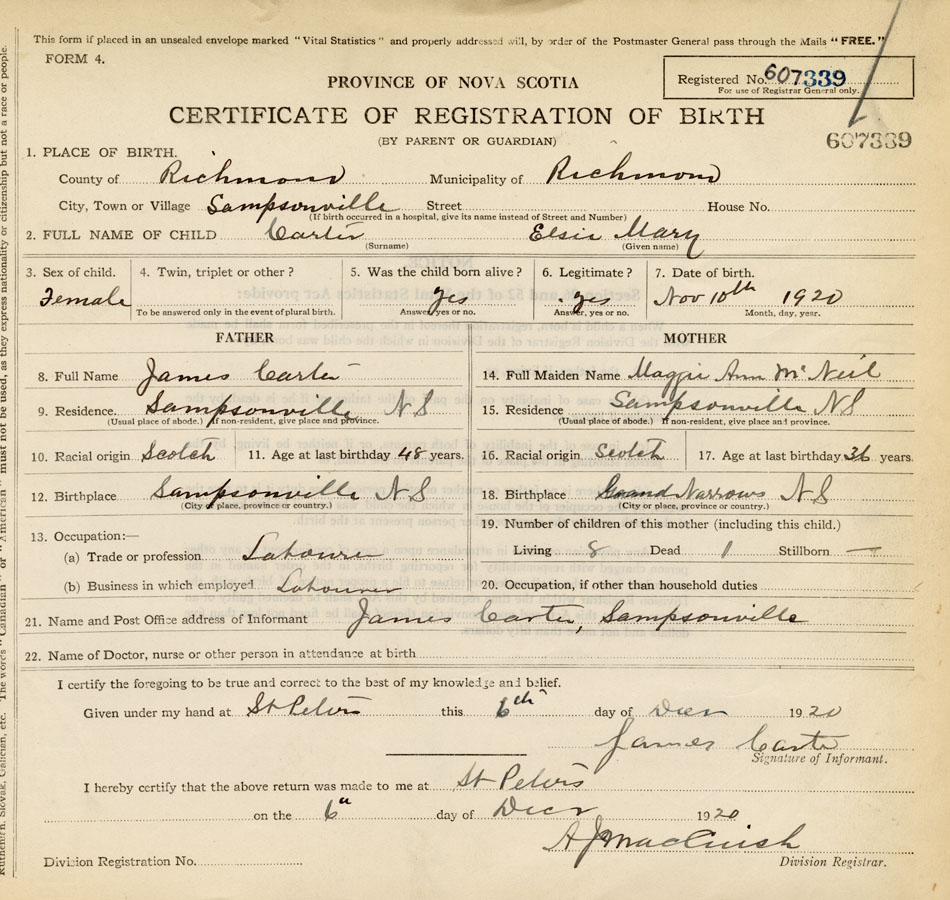 This form if placed in an unsealed envelope marked "Vital Statistics" and properly addressed will, by order of the Postmaster General pass through the Mails "FREE."
FORM 4.
Registered No. 607339
For use of Registrar General only.
PROVINCE OF NOVA SCOTIA
CERTIFICATE OF REGISTRATION OF BIRTH
(BY PARENT OR GUARDIAN)
607339
1. PLACE OF BIRTH.
County of Richmond Municipality of Richmond
City, Town or Village Sampsonville Street House No.
(If birth occurred in a hospital, give its name instead of Street and Number)
2. FULL NAME OF CHILD Carter Elsie Mary
(Surname) (Given name)
3. Sex of child. 4. Twin, triplet or other? 5. Was the child born alive? 6. Legitimate? 7. Date of birth.
Female yes yes Nov 10th 1920
To be answered only in the event of plural birth. Answer, yes or no. Answer, yes or no. Month, day, year.
FATHER MOTHER
8. Full Name James Carter 14. Full Maiden Name Maggie Ann McNeil
9. Residence. Sampsonville N S 15. Residence Sampsonville NS
(Usual place of abode.) If non-resident, give place and province. (Usual place of abode.) If non-resident, give place and province.
10. Racial origin Scotch 11. Age at last birthday 48 years. 16. Racial origin Scotch 17. Age at last birthday 36 years.
12. Birthplace Sampsonville N S 18. Birthplace Grand Narrows N S
(City or place, province or country.) (City or place, province or country.)
13. Occupation:— 19. Number of children of this mother (including this child.)
(a) Trade or profession Labourer Living 8 Dead 1 Stillborn —
(b) Business in which employed Labourer 20. Occupation, if other than household duties
21. Name and Post Office address of Informant James Carter, Sampsonville
22. Name of Doctor, nurse or other person in attendance at birth
I certify the foregoing to be true and correct to the best of my knowledge and belief.
Given under my hand at St Peters this 6th day of Decr 1920
James Carter
Signature of Informant.
I hereby certify that the above return was made to me at St Peters
on the 6th day of Decr 1920
A J MacCuish
Division Registration No. Division Registrar.
Ruthenian, Slovak, Galician, etc. The words "Canadian" or "American" must not be used, as they express nationality or citizenship but not a race or people.